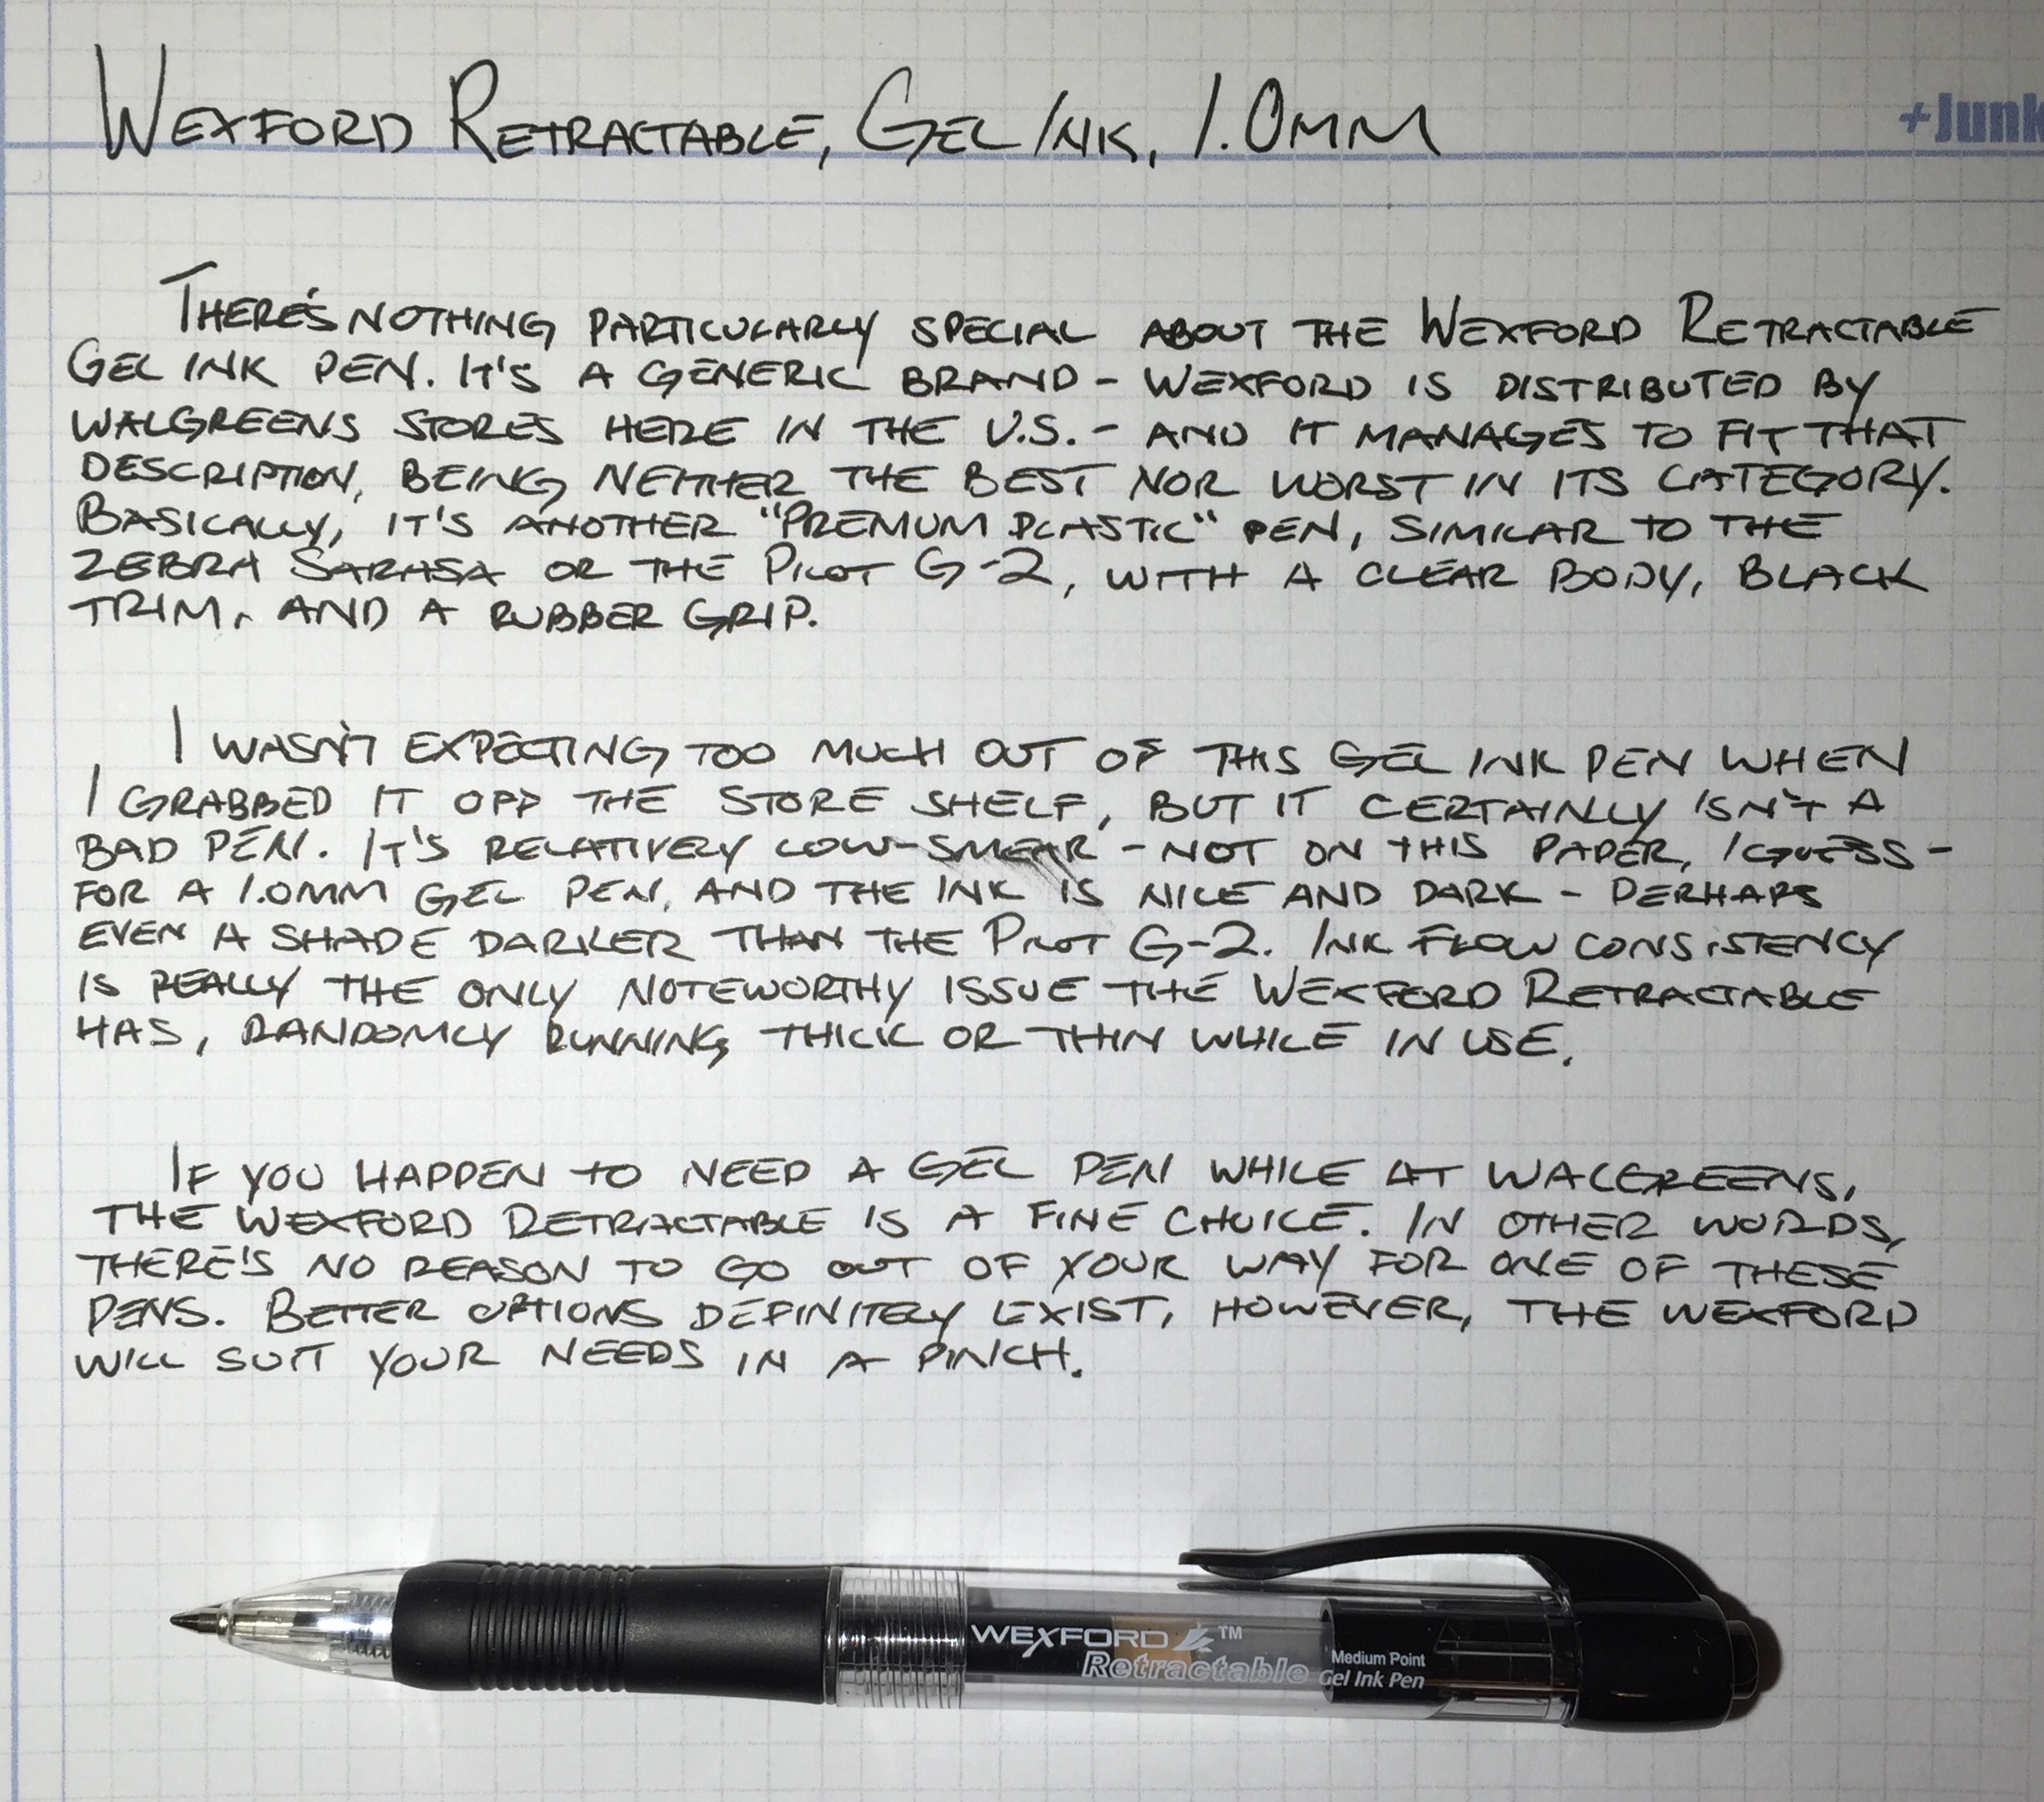 WEXFORD RETRACTABLE, GEL INK, 1.0MM
+Junk
THERE'S NOTHING PARTICULARLY SPECIAL ABOUT THE WEXFORD RETRACTABLE
GEL INK PEN. IT'S A GENERIC BRAND - WEXFORD IS DISTRIBUTED BY
WALGREENS STORES HERE IN THE U.S. - AND IT MANAGES TO FIT THAT
DESCRIPTION, BEING NEITHER THE BEST NOR WORST IN ITS CATEGORY.
BASICALLY, IT'S ANOTHER "PREMIUM PLASTIC" PEN, SIMILAR TO THE
ZEBRA SARASA OR THE PILOT G-2, WITH A CLEAR BODY, BLACK
TRIM, AND A RUBBER GRIP.
I WASN'T EXPECTING TOO MUCH OUT OF THIS GEL INK PEN WHEN
I GRABBED IT OFF THE STORE SHELF, BUT IT CERTAINLY ISN'T A
BAD PEN. IT'S RELATIVELY LOW-SMEAR - NOT ON THIS PAPER, I GUESS -
FOR A 1.0MM GEL PEN, AND THE INK IS NICE AND DARK - PERHAPS
EVEN A SHADE DARKER THAN THE PILOT G-2. INK FLOW CONSISTENCY
IS REALLY THE ONLY NOTEWORTHY ISSUE THE WEXFORD RETRACTABLE
HAS, RANDOMLY RUNNING THICK OR THIN WHILE IN USE.
IF YOU HAPPEN TO NEED A GEL PEN WHILE AT WALGREENS,
THE WEXFORD RETRACTABLE IS A FINE CHOICE. IN OTHER WORDS,
THERE'S NO REASON TO GO OUT OF YOUR WAY FOR ONE OF THESE
PENS. BETTER OPTIONS DEFINITELY EXIST, HOWEVER, THE WEXFORD
WILL SUIT YOUR NEEDS IN A PINCH.
WEXFORD ™
Retractable
Medium Point
Gel Ink Pen